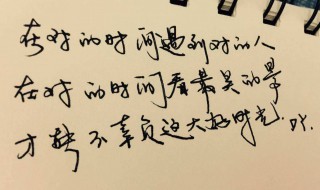 在对的时间遇到对的人
在对的时间看最美的景
才能不辜负这大好时光.